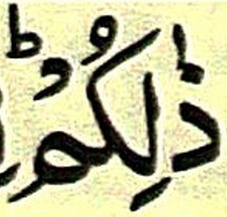 ذٰلِكُمْؕ